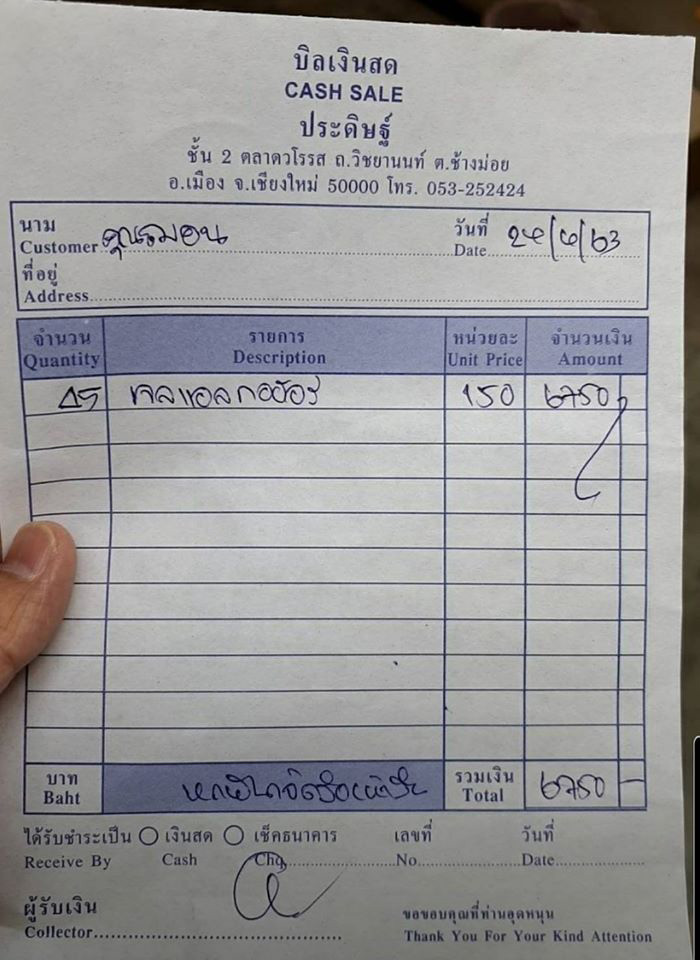 บิลเงินสด
CASH SALE
ประดิษฐ์
ชั้น 2 ตลาดวโรรส ถ.วิชยานนท์ ต.ช้างม่อย
อ.เมือง จ.เชียงใหม่ 50000 โทร. 053-252424
นาม วันที่
Customer คุณ Date /63
ที่อยู่
Address
จำนวน รายการ หน่วยละ จำนวนเงิน
Quantity Description Unit Price Amount
45 เจลแอลกอฮอร์ 150 6750
บาท รวมเงิน
Baht Total 6750 –
ได้รับชำระเป็น เงินสด เช็คธนาคาร เลขที่ วันที่
Receive By Cash Chq. No. Date
ผู้รับเงิน ขอขอบคุณที่ท่านอุดหนุน
Collector Thank You For Your Kind Attention